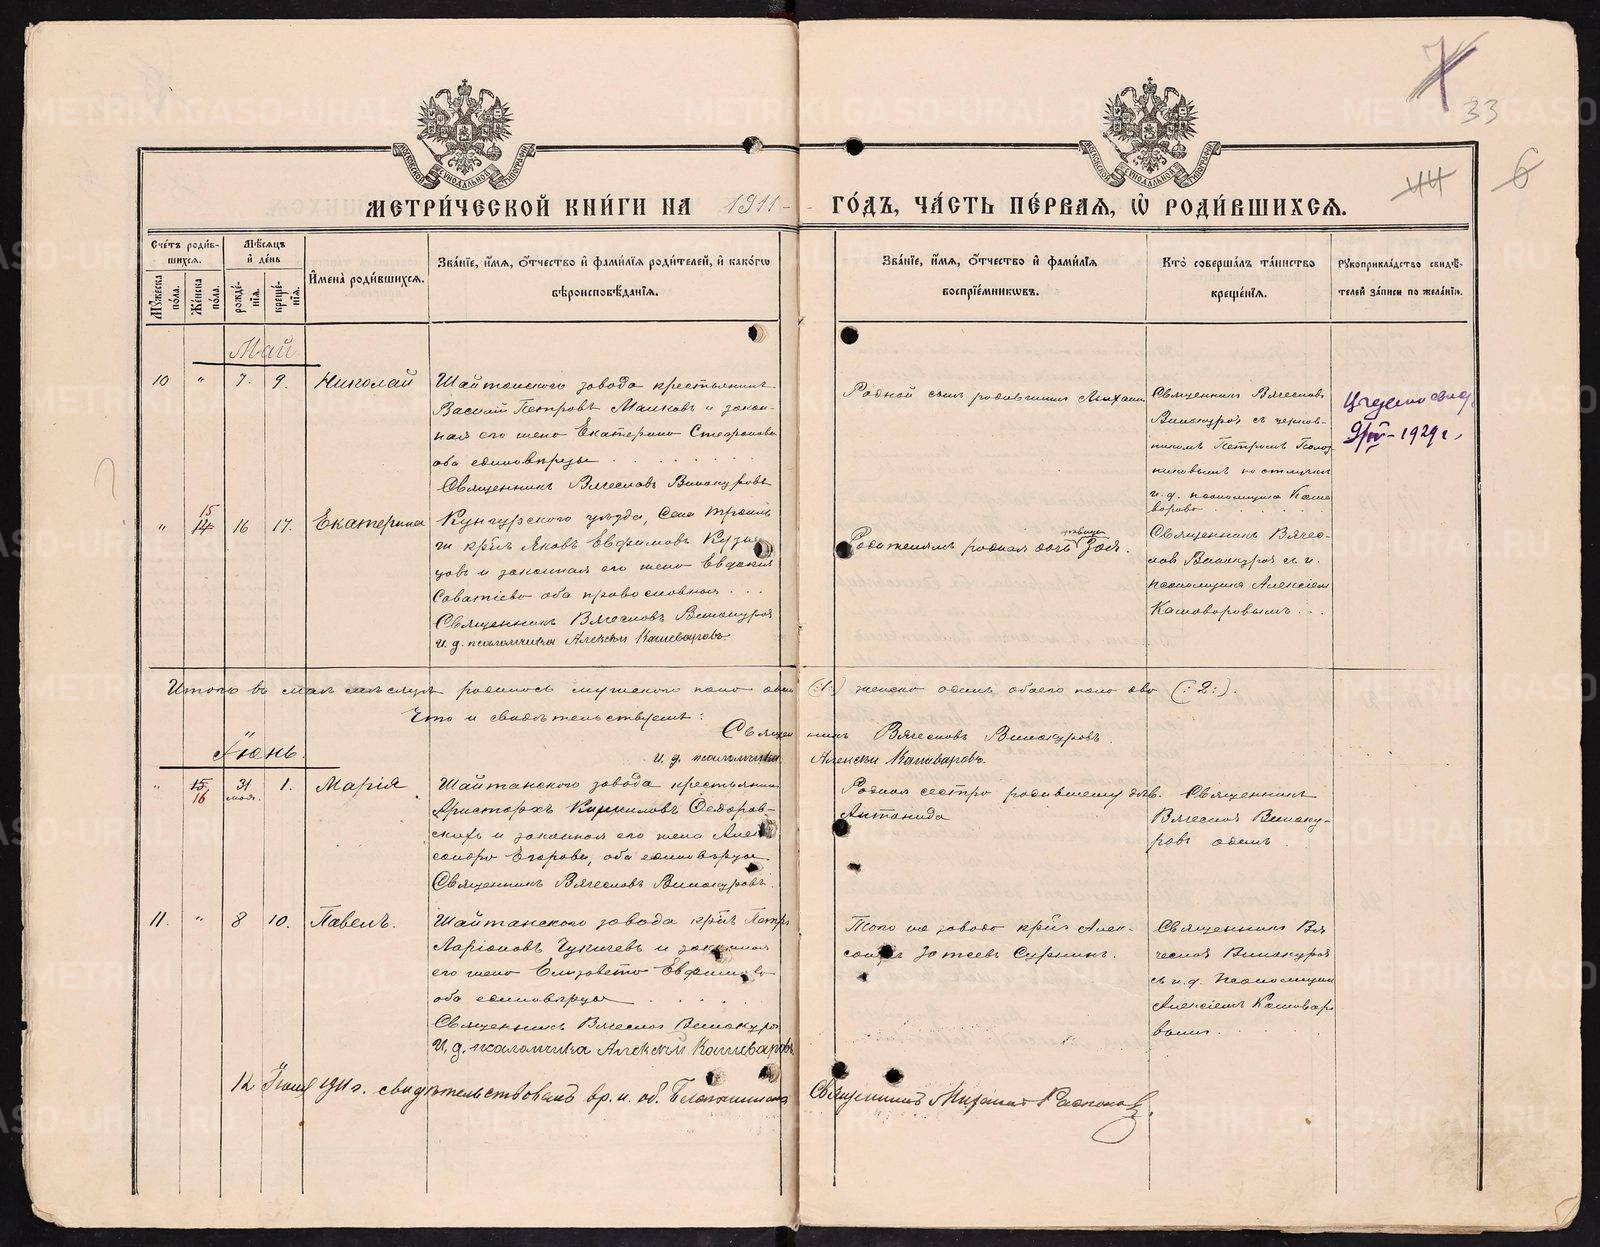 7
33
44
6
МОСКОВСКОЙ СѴНОДАЛЬНОЙ ТИПОГРАФІИ
МОСКОВСКОЙ СѴНОДАЛЬНОЙ ТИПОГРАФІИ
МЕТРИ́ЧЕСКОЙ КНИ́ГИ НА 1911 ГО́ДЪ, ЧА́СТЬ ПЕ́РВАЯ, Ѡ РОДИ́ВШИХСЯ.
Сче́тъ роди́вшихся.
Мѣ́сяцъ и де́нь
Мꙋ́жеска по́ла.
Же́нска по́ла.
рожде́нїѧ.
креще́нїѧ.
Имена̀ роди́вшихся.
Зва́нїе, и́мѧ, ѻ́тчество и фами́лїѧ роди́телей, и како́гѡ вѣроисповѣ́данїѧ.
Зва́нїе, и́мѧ, ѻ́тчество и фами́лїѧ воспрїе́мникѡвъ.
Кто̀ соверша́лъ та́инство креще́нїѧ.
Рꙋкоприкла́дство свидѣ́телей за́писи по жела́нїю.
Май
10 " 7. 9. Николай
Шайтанского завода крестьянинъ
Василій Петровъ Малковъ и закон-
ная его жена Екатерина Стефанова
оба единоверцы
Священникъ Вячеславъ Винокуровъ
Родной сынъ родившихъ Михаилъ
Священникъ Вячеславъ
Винокуровъ съ
Петромъ
и. д. псаломщика Каше
варова
9/IV-1929 г.
" 14 15 16 17. Екатерина
Кунгурского уезда, Села
Яковъ Евфимовъ Кузне
цовъ и законная его жена Евдокия
Саватіева оба православныя
Священникъ Вячеславъ Винокуровъ
И. д. псаломщика Алексѣй Кашеваровъ
Родителямъ родная дочь девица Зоя.
Священникъ Вячес-
лавъ Винокуровъ съ и.
псаломщика Алексіем
Кашеваровымъ
Итого въ маѣ мѣсяцѣ родилось мужского пола одинъ (:1:) женска одинъ обоего пола два (:2:).
Что и свидѣтельствуемъ:
Священникъ Вячеславъ Винокуровъ.
и. д. псаломщика Алексѣй Кашеваровъ.
Іюнь.
" 15 16 31 мая. 1. Марія
Шайтанского завода крестьянинъ
Аристархъ Кирилловъ Федоров-
скихъ и законная его жена Алек
сандра Егорова, оба единоверцы
Священникъ Вячеславъ Винокуровъ.
Родная сестра родившему дѣв.
Антонида
Священникъ
Вячеславъ Виноку-
ровъ одинъ.
11. " 8 10. Павелъ.
Шайтанского завода Петръ
Ларіоновъ Чукичевъ и законная
его жена Елизавета Евфимова
оба единоверцы
Священникъ Вячеславъ Винокуровъ
И. д. псаломщика Алексѣй Кашеваровъ
Того же завода Алек-
сандръ Сурнинъ.
Священникъ Вя
чеславъ Винокуровъ
съ и. д. псаломщик
Алексіемъ Кашевар
вымъ
12 Іюля 1911 г. свидѣтельствовалъ вр. и. об. Благочиннаго Священникъ Михаилъ